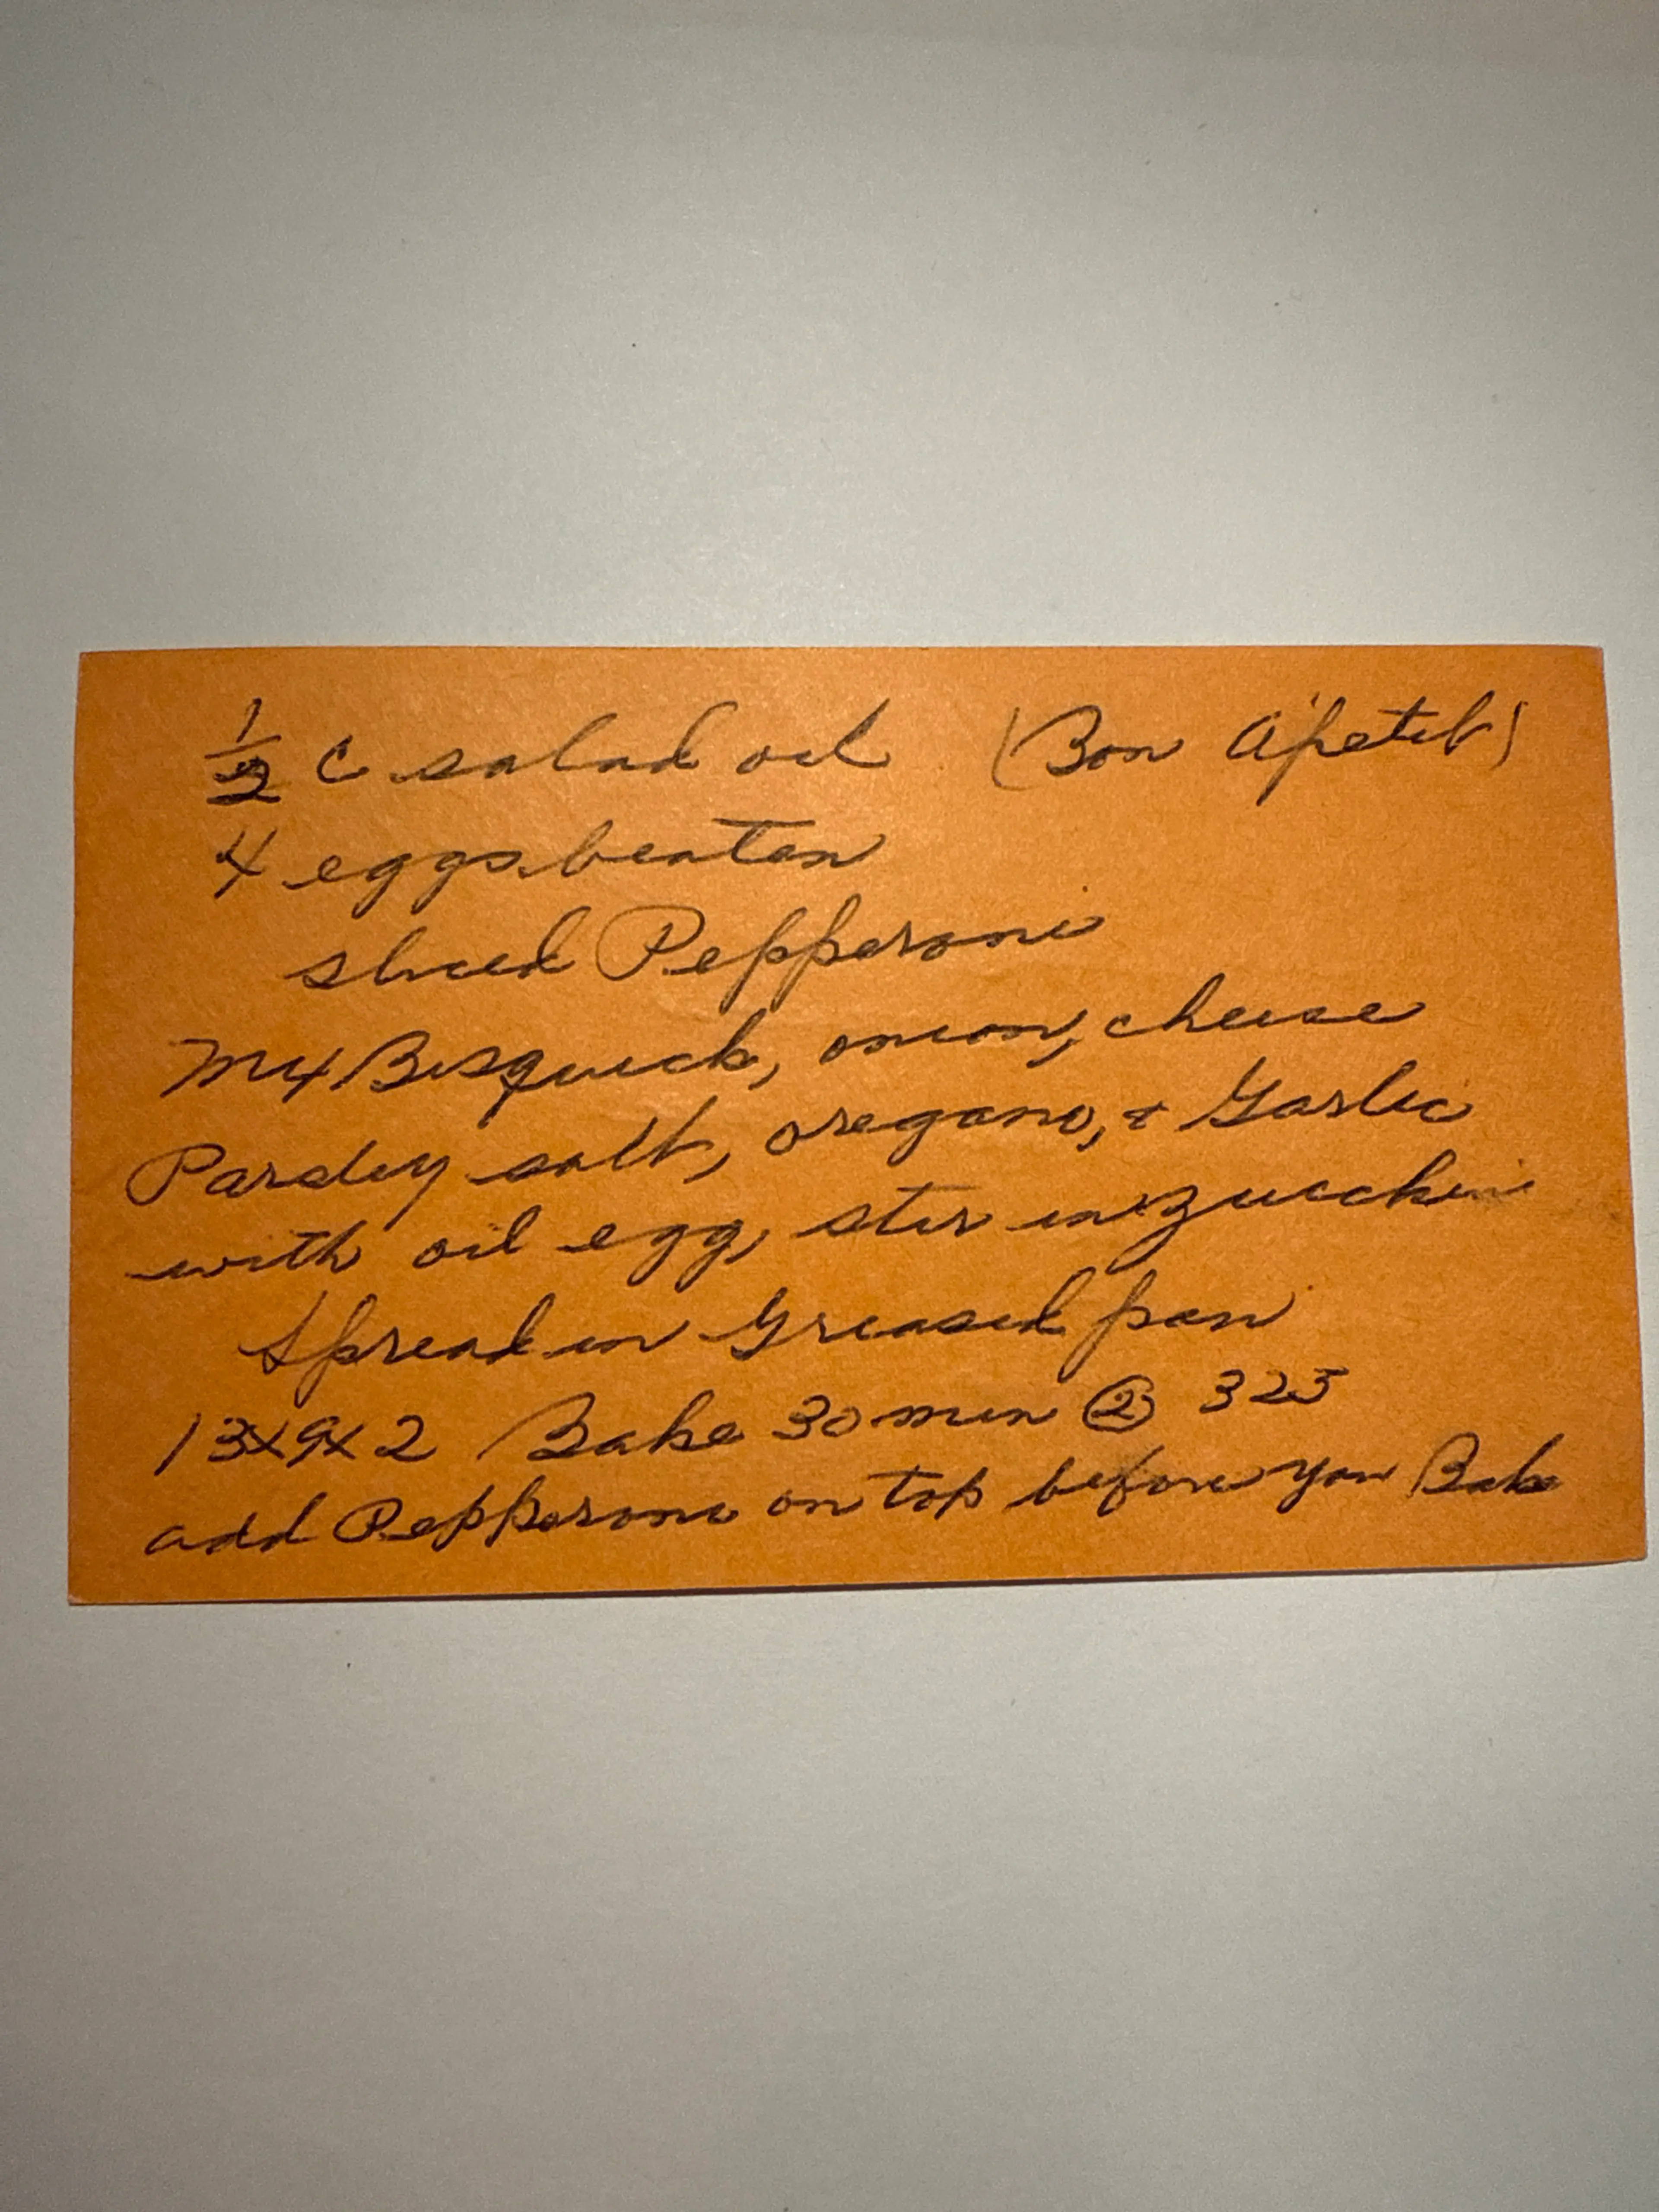 1/2 c salad oil (Bon Apetit)
4 eggs beaten
sliced Pepperoni
Mix Bisquick, onion, cheese
Parsley salt, oregano, & Garlic
with oil egg, stir in zucchini
Spread in Greased pan
13x9x2 Bake 30 min @ 325
add Pepperoni on top before you Bake